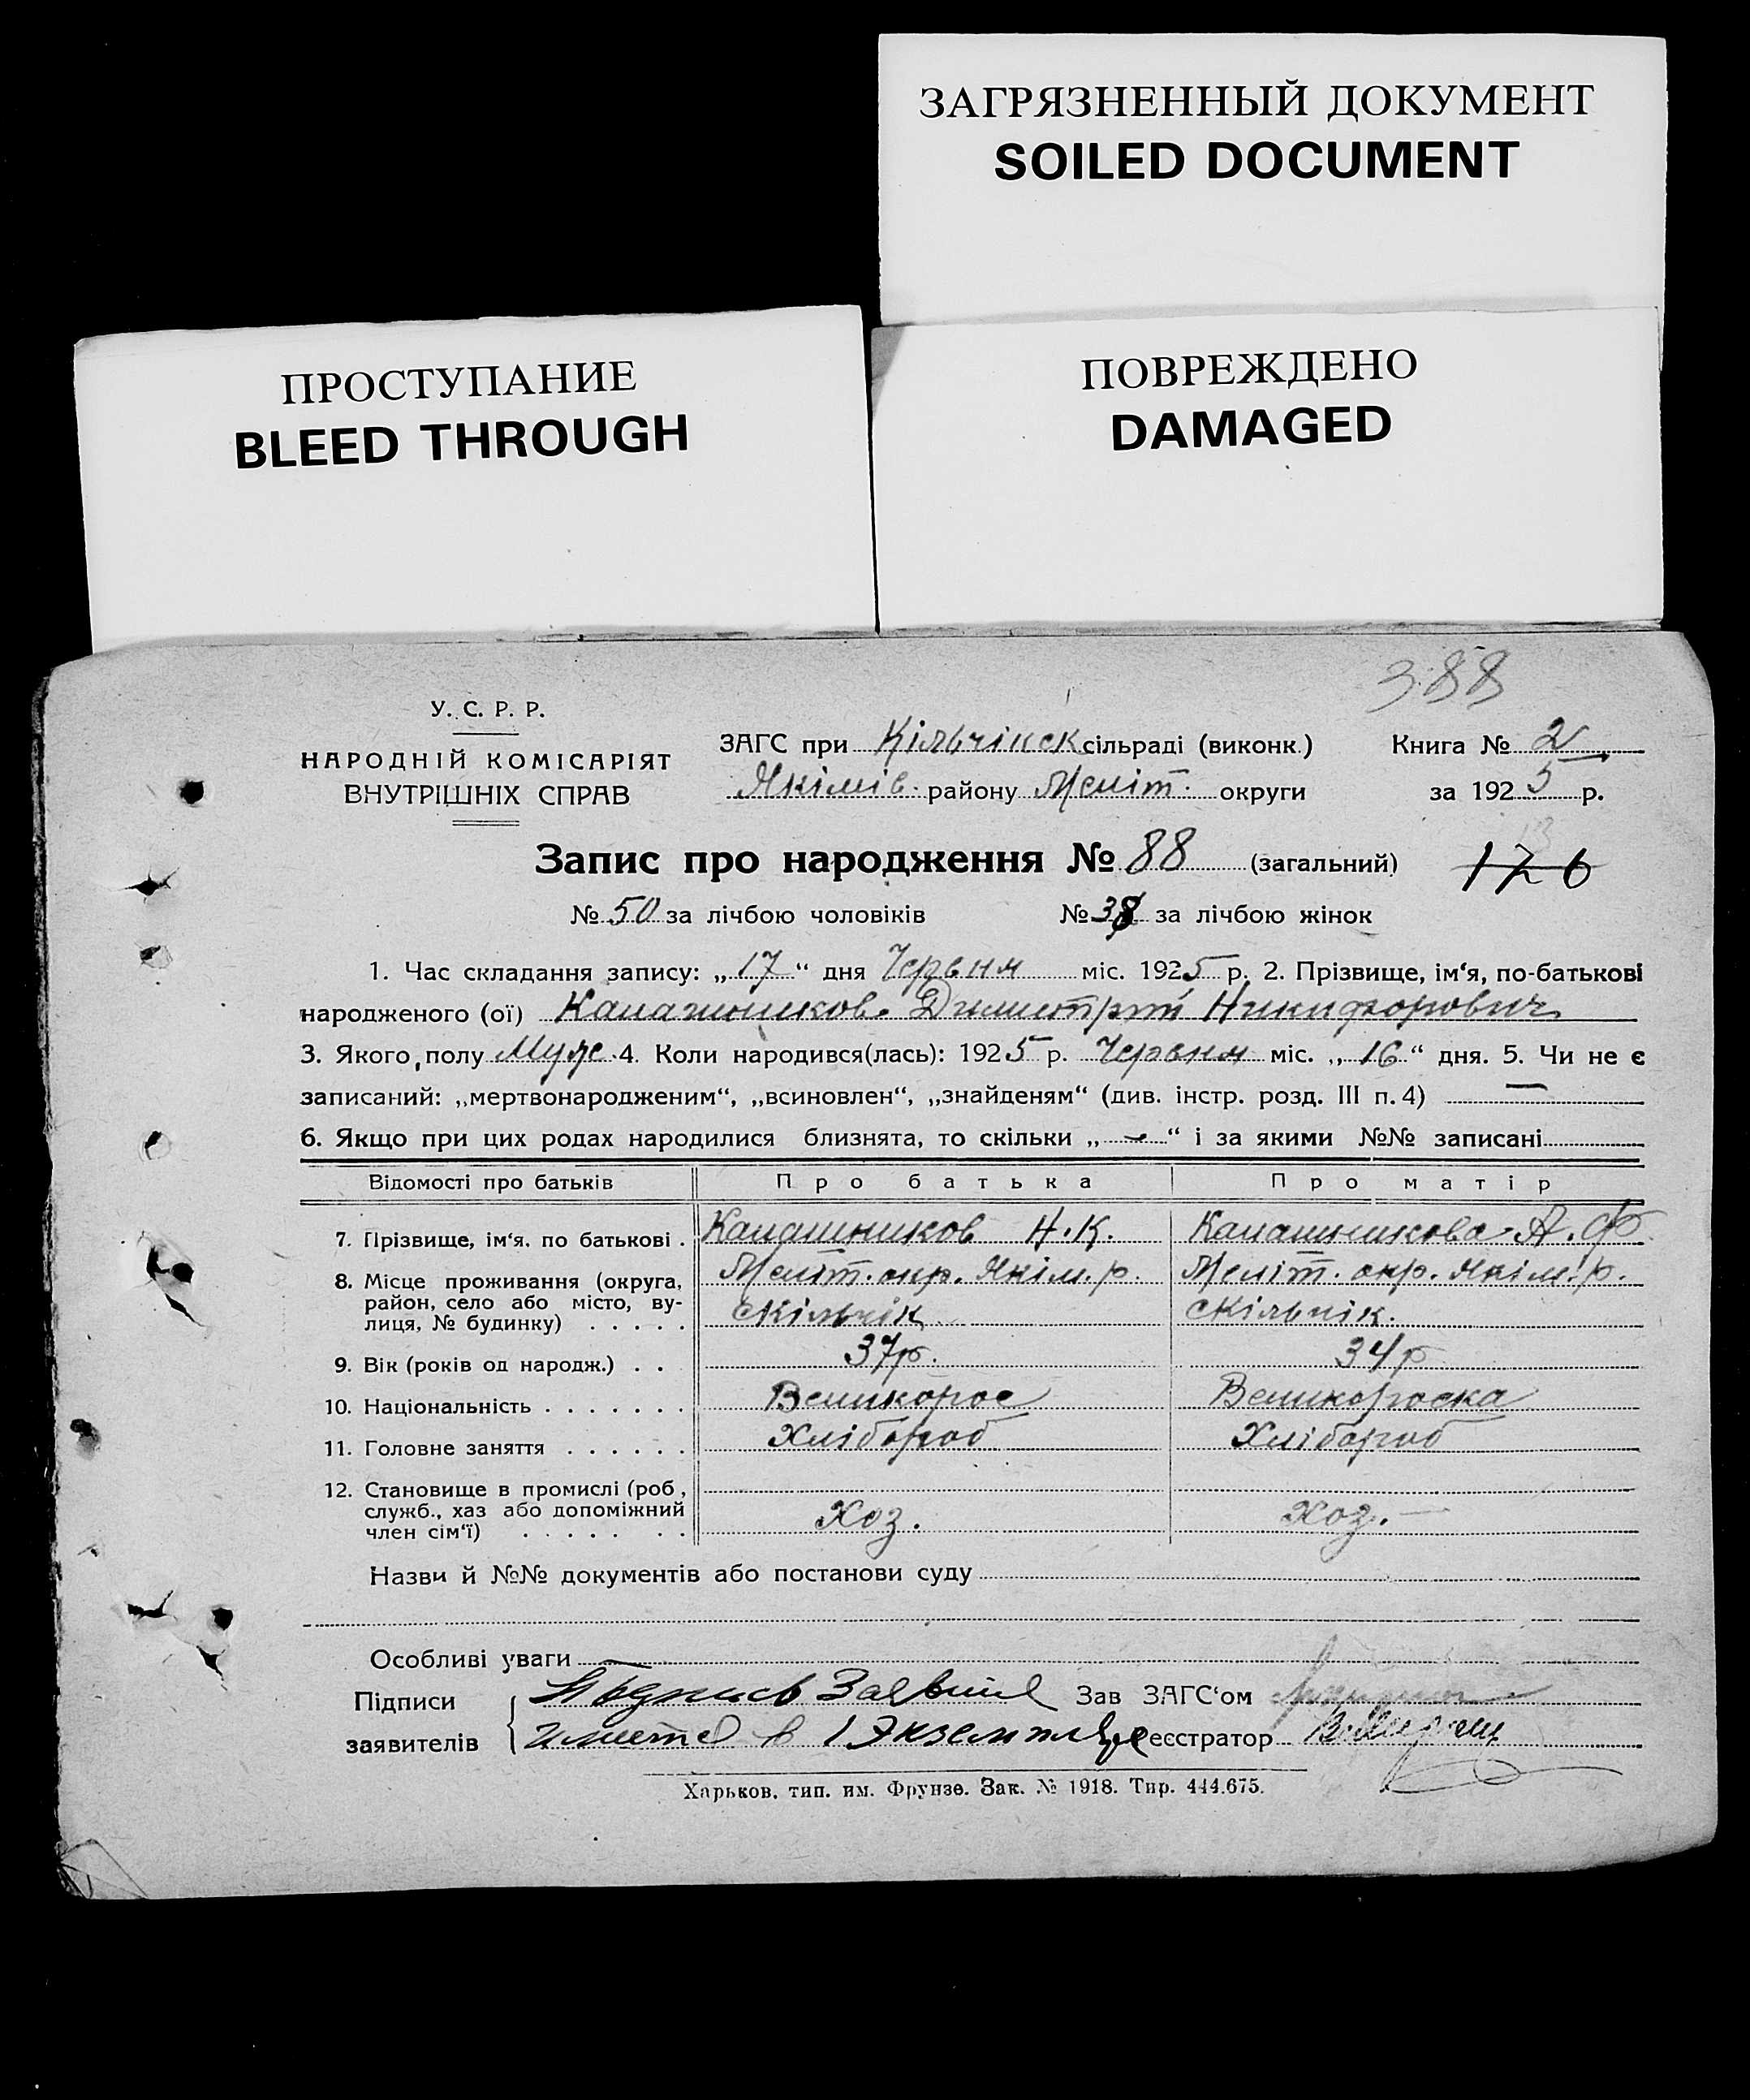 ЗАГРЯЗНЕННЫЙ ДОКУМЕНТ
SOILED DOCUMENT
ПРОСТУПАНИЕ
BLEED THROUGH
ПОВРЕЖДЕНО
DAMAGED
388
У. С. Р. Р.
НАРОДНІЙ КОМІСАРІЯТ
ВНУТРІШНІХ СПРАВ
ЗАГС при Кільчінск сільраді (виконк.) Книга № 2
Якімів. району Меліт. округи за 1925 р.
Запис про народження № 88 (загальний) 126
№ 50 за лічбою чоловіків № 38 за лічбою жінок
1. Час складання запису: „17“ дня Червня міс. 1925 р. 2. Прізвище, ім‘я, по-батькові
народженого (ої) Калашников Димитрий Никифорович
3. Якого полу Муже. 4. Коли народився(лась): 1925 р. Червня міс. „16“ дня. 5. Чи не є
записаний: „мертвонародженим“, „всиновлен“, „знайденям“ (див. інстр. розд. III п. 4) —
6. Якщо при цих родах народилися близнята, то скільки „—“ і за якими №№ записані
Відомості про батьків Про батька Про матір
7. Прізвище, ім‘я. по батькові . Калашников Н. К. Калашникова А. Ф.
8. Місце проживання (округа, район, село або місто, вулиця, № будинку) . . . . . Меліт. окр. Якім. р. Меліт. окр. Якім. р.
9. Вік (років од народж.) . . 37 р. 34 р
10. Національність . . . . . . . Великорос Великороска
11. Головне заняття . . . . . . Хлібороб Хлібороб
12. Становище в промислі (роб, служб., хаз або допоміжний член сім‘ї) . . . . . . . Хоз. Хоз. —
Назви й №№ документів або постанови суду
Особливі уваги —
Підписи Подпись Заявите Зав ЗАГС‘ом
заявителів имется в 1 Экземпляре Реєстратор
Харьков, тип. им. Фрунзе. Зак. № 1918. Тир. 444.675.